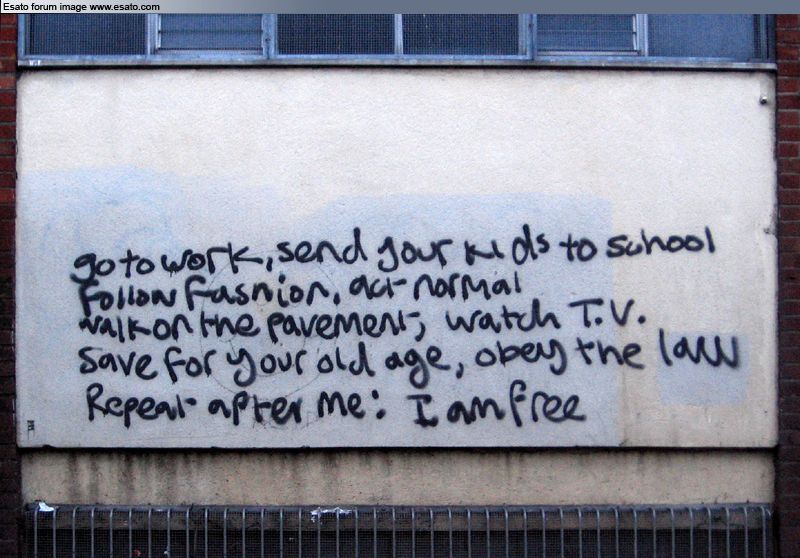 Esato forum image www.esato.com
go to work, send your kids to school
follow fashion, act normal
walk on the pavement, watch T.V.
save for your old age, obey the law
Repeat after me: I am free